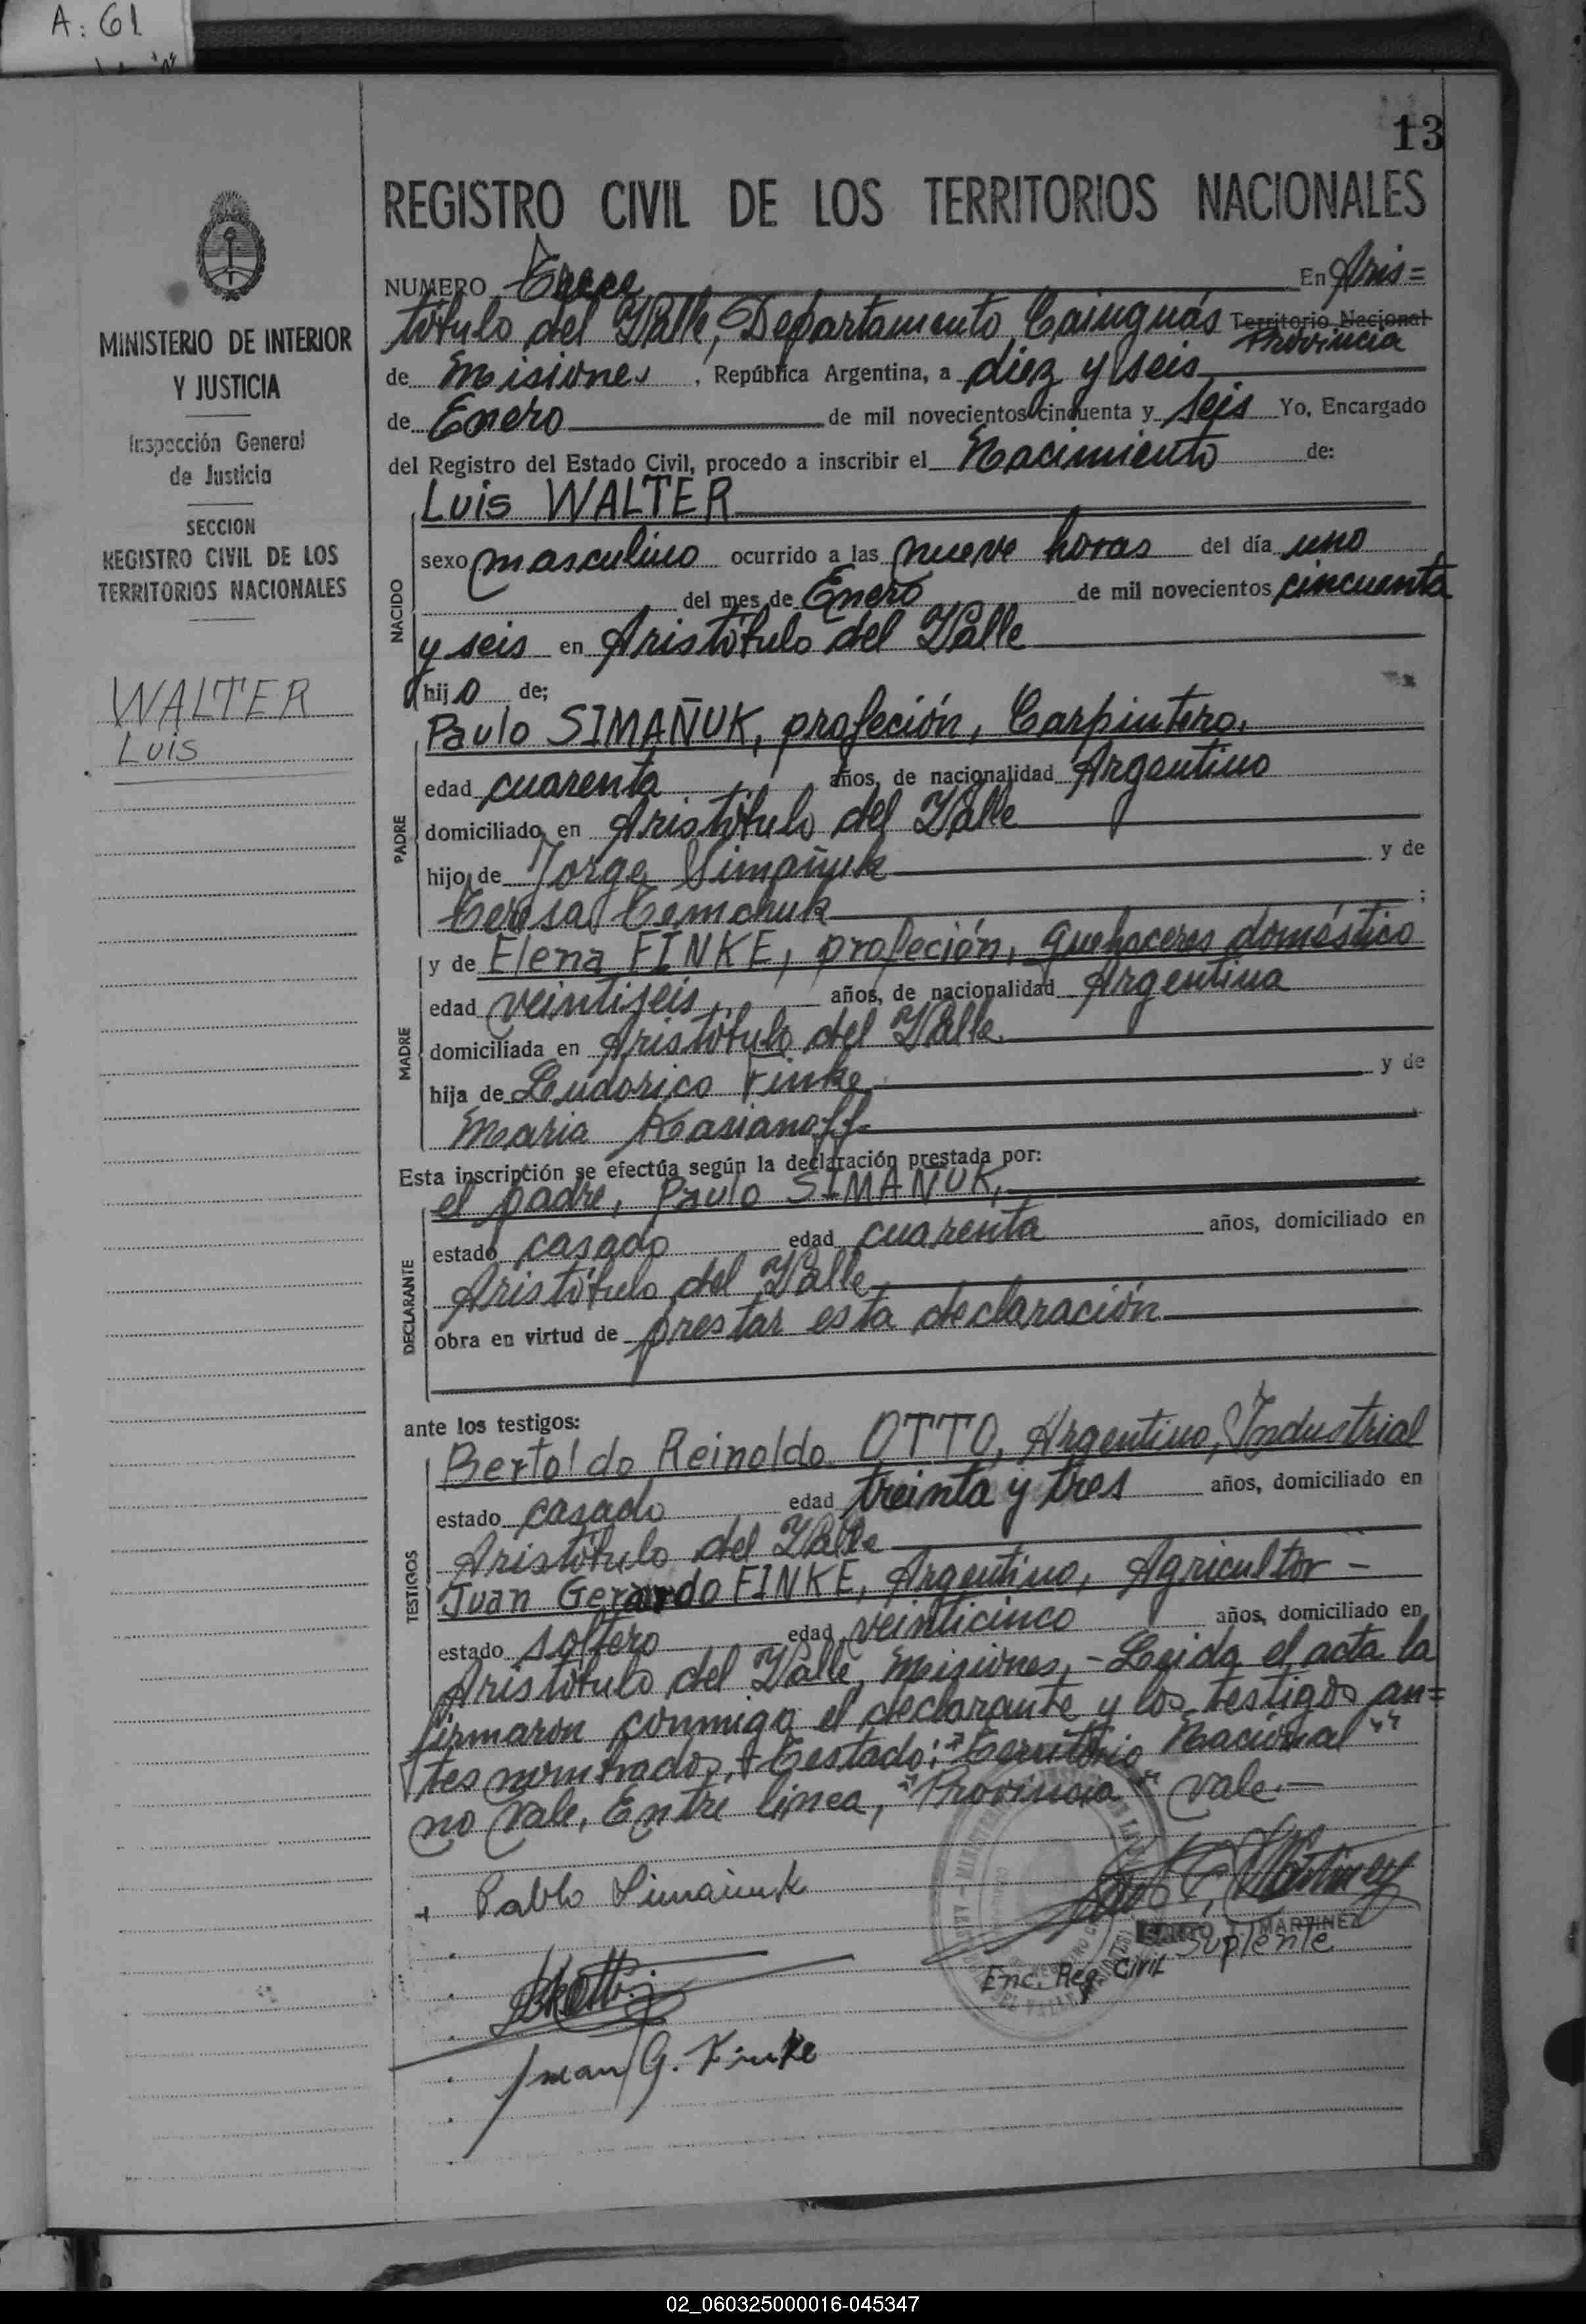 A: 61
13
REGISTRO CIVIL DE LOS TERRITORIOS NACIONALES
MINISTERIO DE INTERIOR
Y JUSTICIA
Inspección General
de Justicia
SECCION
REGISTRO CIVIL DE LOS
TERRITORIOS NACIONALES
WALTER
Luis
NUMERO Trece En Aris=
tótulo del Valle, Departamento Cainguás Territorio Nacional
Provincia
de Misiones, República Argentina, a diez y seis
de Enero de mil novecientos cincuenta y seis Yo, Encargado
del Registro del Estado Civil, procedo a inscribir el Nacimiento de:
NACIDO
Luis WALTER
sexo masculino ocurrido a las nueve horas del día uno
del mes de Enero de mil novecientos cincuenta
y seis en Aristótulo del Valle
hijo de;
PADRE
Paulo SIMAÑUK, profeción, Carpintero,
edad cuarenta años, de nacionalidad Argentino
domiciliado en Aristótulo del Valle
hijo de Jorge Simañuk y de
Teresa Temchuk ;
MADRE
y de Elena FINKE, profeción, quehaceres doméstico
edad veintiseis, años, de nacionalidad Argentina
domiciliada en Aristótulo del Valle.
hija de Ludorico Finke y de
Maria Kasianoff
Esta inscripción se efectúa según la declaración prestada por:
DECLARANTE
el padre, Paulo SIMAÑUK,
estado casado edad cuarenta años, domiciliado en
Aristótulo del Valle
obra en virtud de prestar esta declaración
ante los testigos:
TESTIGOS
Bertoldo Reinoldo OTTO, Argentino, Industrial
estado casado edad treinta y tres años, domiciliado en
Aristótulo del Valle
Juan Gerardo FINKE, Argentino, Agricultor -
estado soltero edad veinticinco años, domiciliado en
Aristótulo del Valle, Misiones, - Leida el acta la
firmaron conmigo el declarante y los testigos an=
tes nombrados, + Testado: "Territorio Nacional"
no vale, Entre linea, "Provincia" vale.-
+ Pablo Simañuk
SANTO T. MARTINEZ
Suplente
Enc. Reg. Civil
Juan G. Finke
02_060325000016-045347